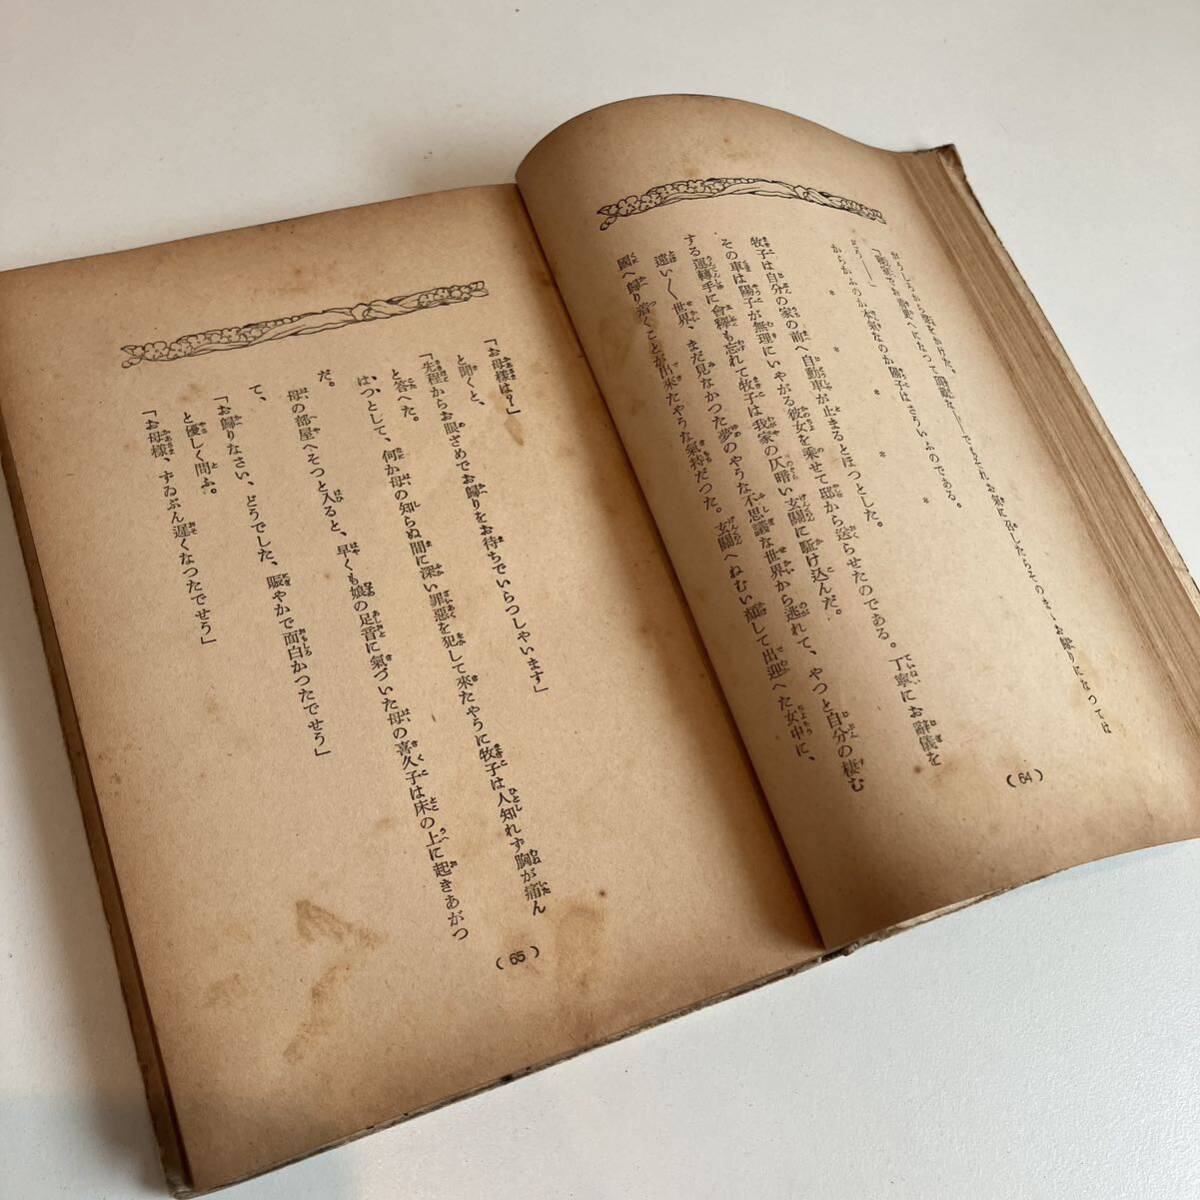 からかふのか本氣なのか陽子はさういふのである。
＊　＊　＊　＊
牧子は自分の家の前へ自動車が止まるとほつとした。
その車は陽子が無理にいやがる彼女を乘せて邸から送らせたのである。丁寧にお辭儀を
する運轉手に會釋も忘れて牧子は我家の仄暗い玄關に駈け込んだ。
遠い〱世界、まだ見なかつた夢のやうな不思議な世界から逃れて、やつと自分の棲む
國へ歸り着くことが出來たやうな氣持だつた。玄關へねむい顏して出迎へた女中に、
(64)
「お母樣は？」
と聞くと、
「先程からお眼ざめでお歸りをお待ちでいらつしやいます」
と答へた。
はつとして、何か母の知らぬ間に深い罪惡を犯して來たやうに牧子は人知れず胸が痛ん
だ。
母の部屋へそつと入ると、早くも娘の足音に氣づいた母の喜久子は床の上に起きあがつ
て、
「お歸りなさい、どうでした、賑やかで面白かつたでせう」
と優しく問ふ。
「お母樣、ずゐぶん遲くなつたでせう」
(65)